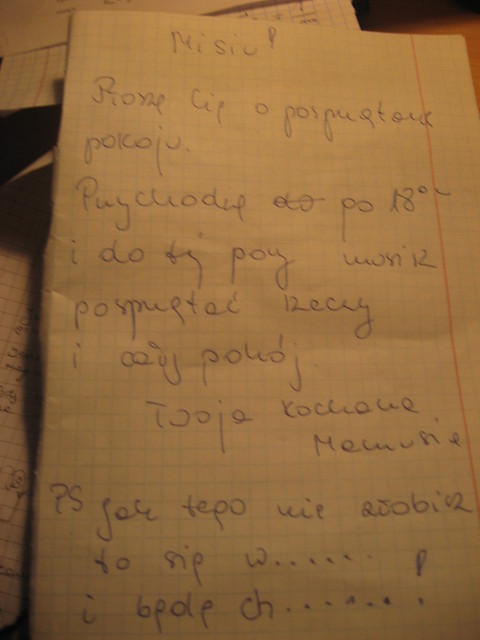 Misiu!
Proszę Cię o posprzątanie
pokoju.
Przychodzę do po 18⁰⁰
i do tej pory musisz
posprzątać rzeczy
i cały pokój.
Twoja kochana
Mamusia
PS jak tego nie zrobisz
to się w......!
i będę ch.......!